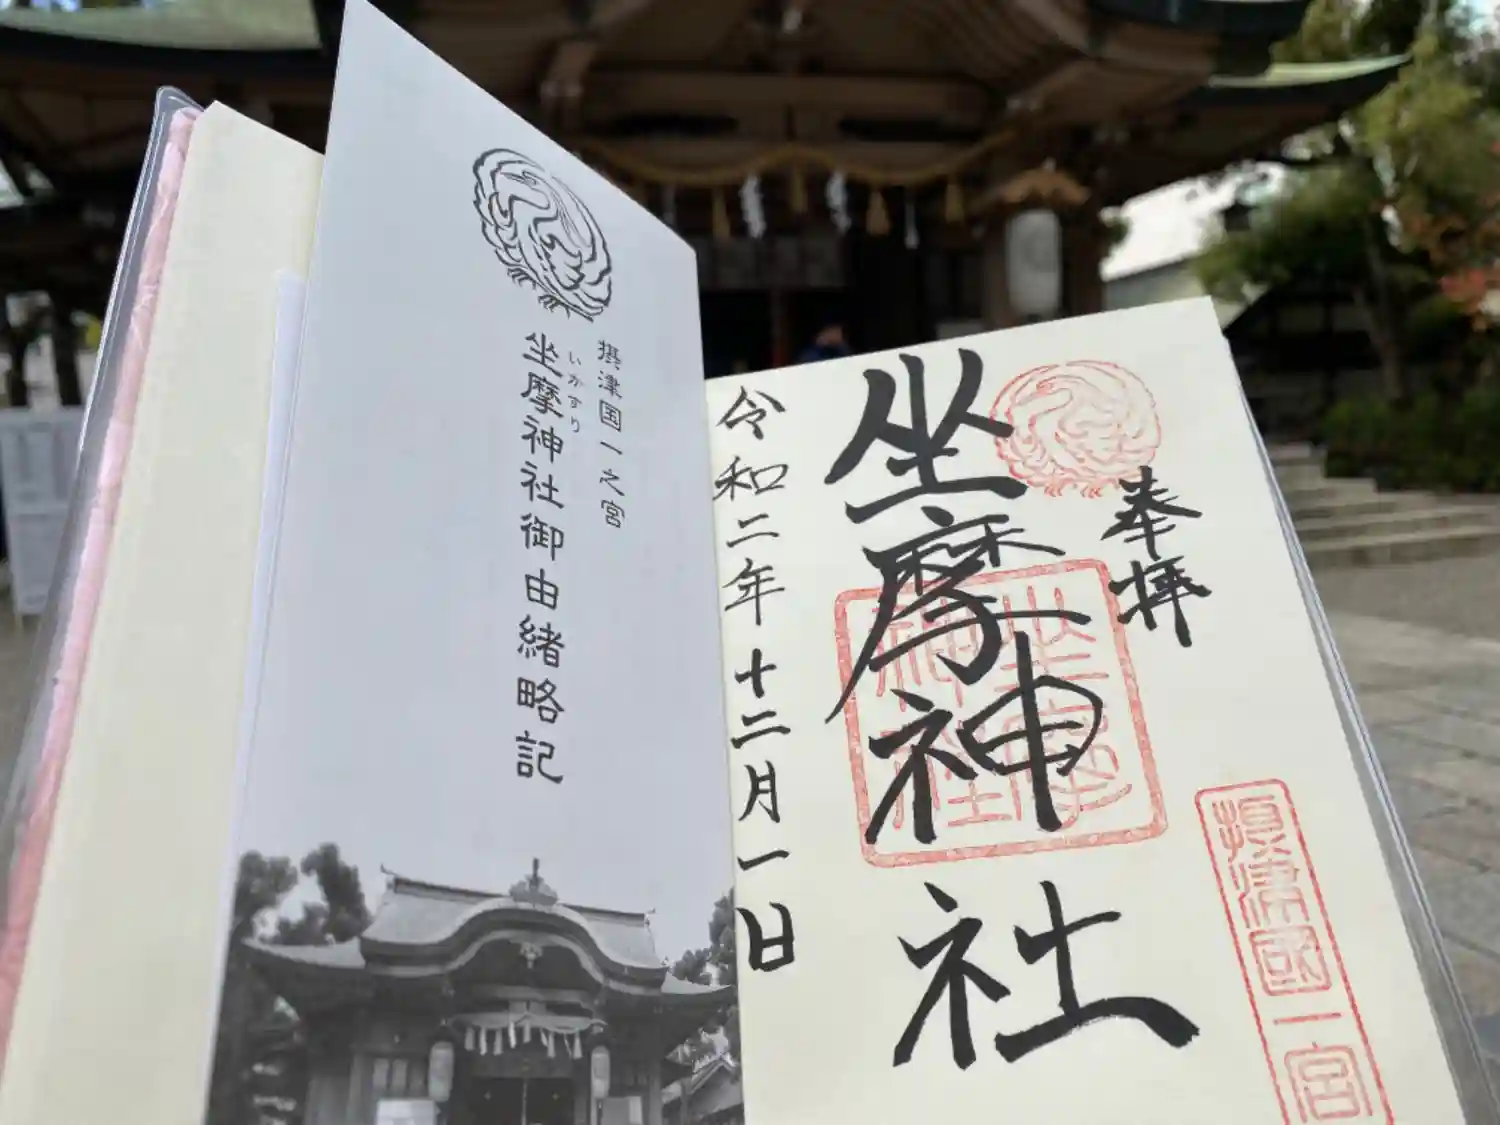 摂津国一之宮
いかすり
坐摩神社御由緒略記
奉拝
坐摩神社
令和二年十二月一日
坐摩神社
摂津國一宮